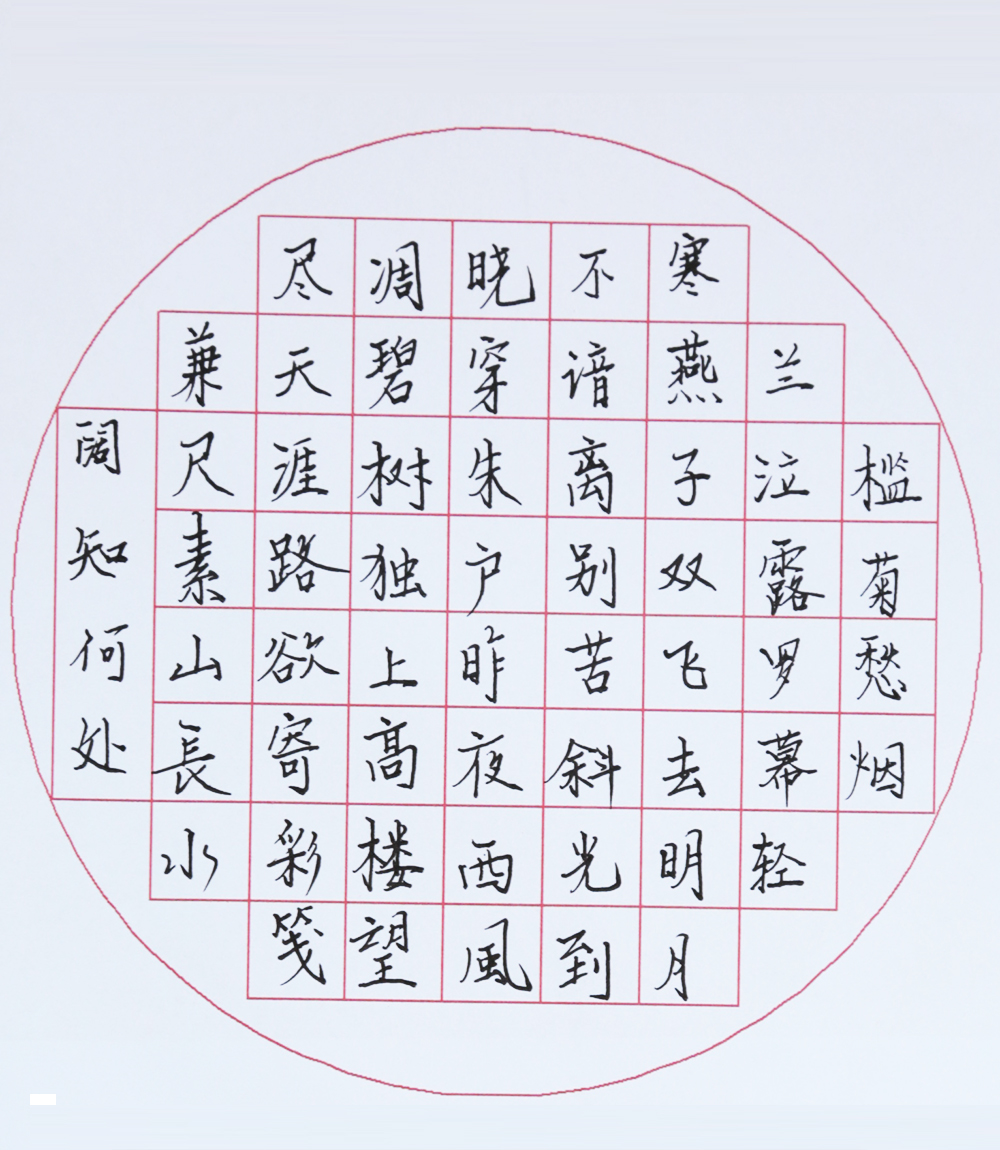 槛菊愁烟
兰泣露罗幕轻
寒燕子双飞去明月
不谙离别苦斜光到
晓穿朱户昨夜西風
凋碧树独上高楼望
尽天涯路欲寄彩笺
兼尺素山長水
阔知何处